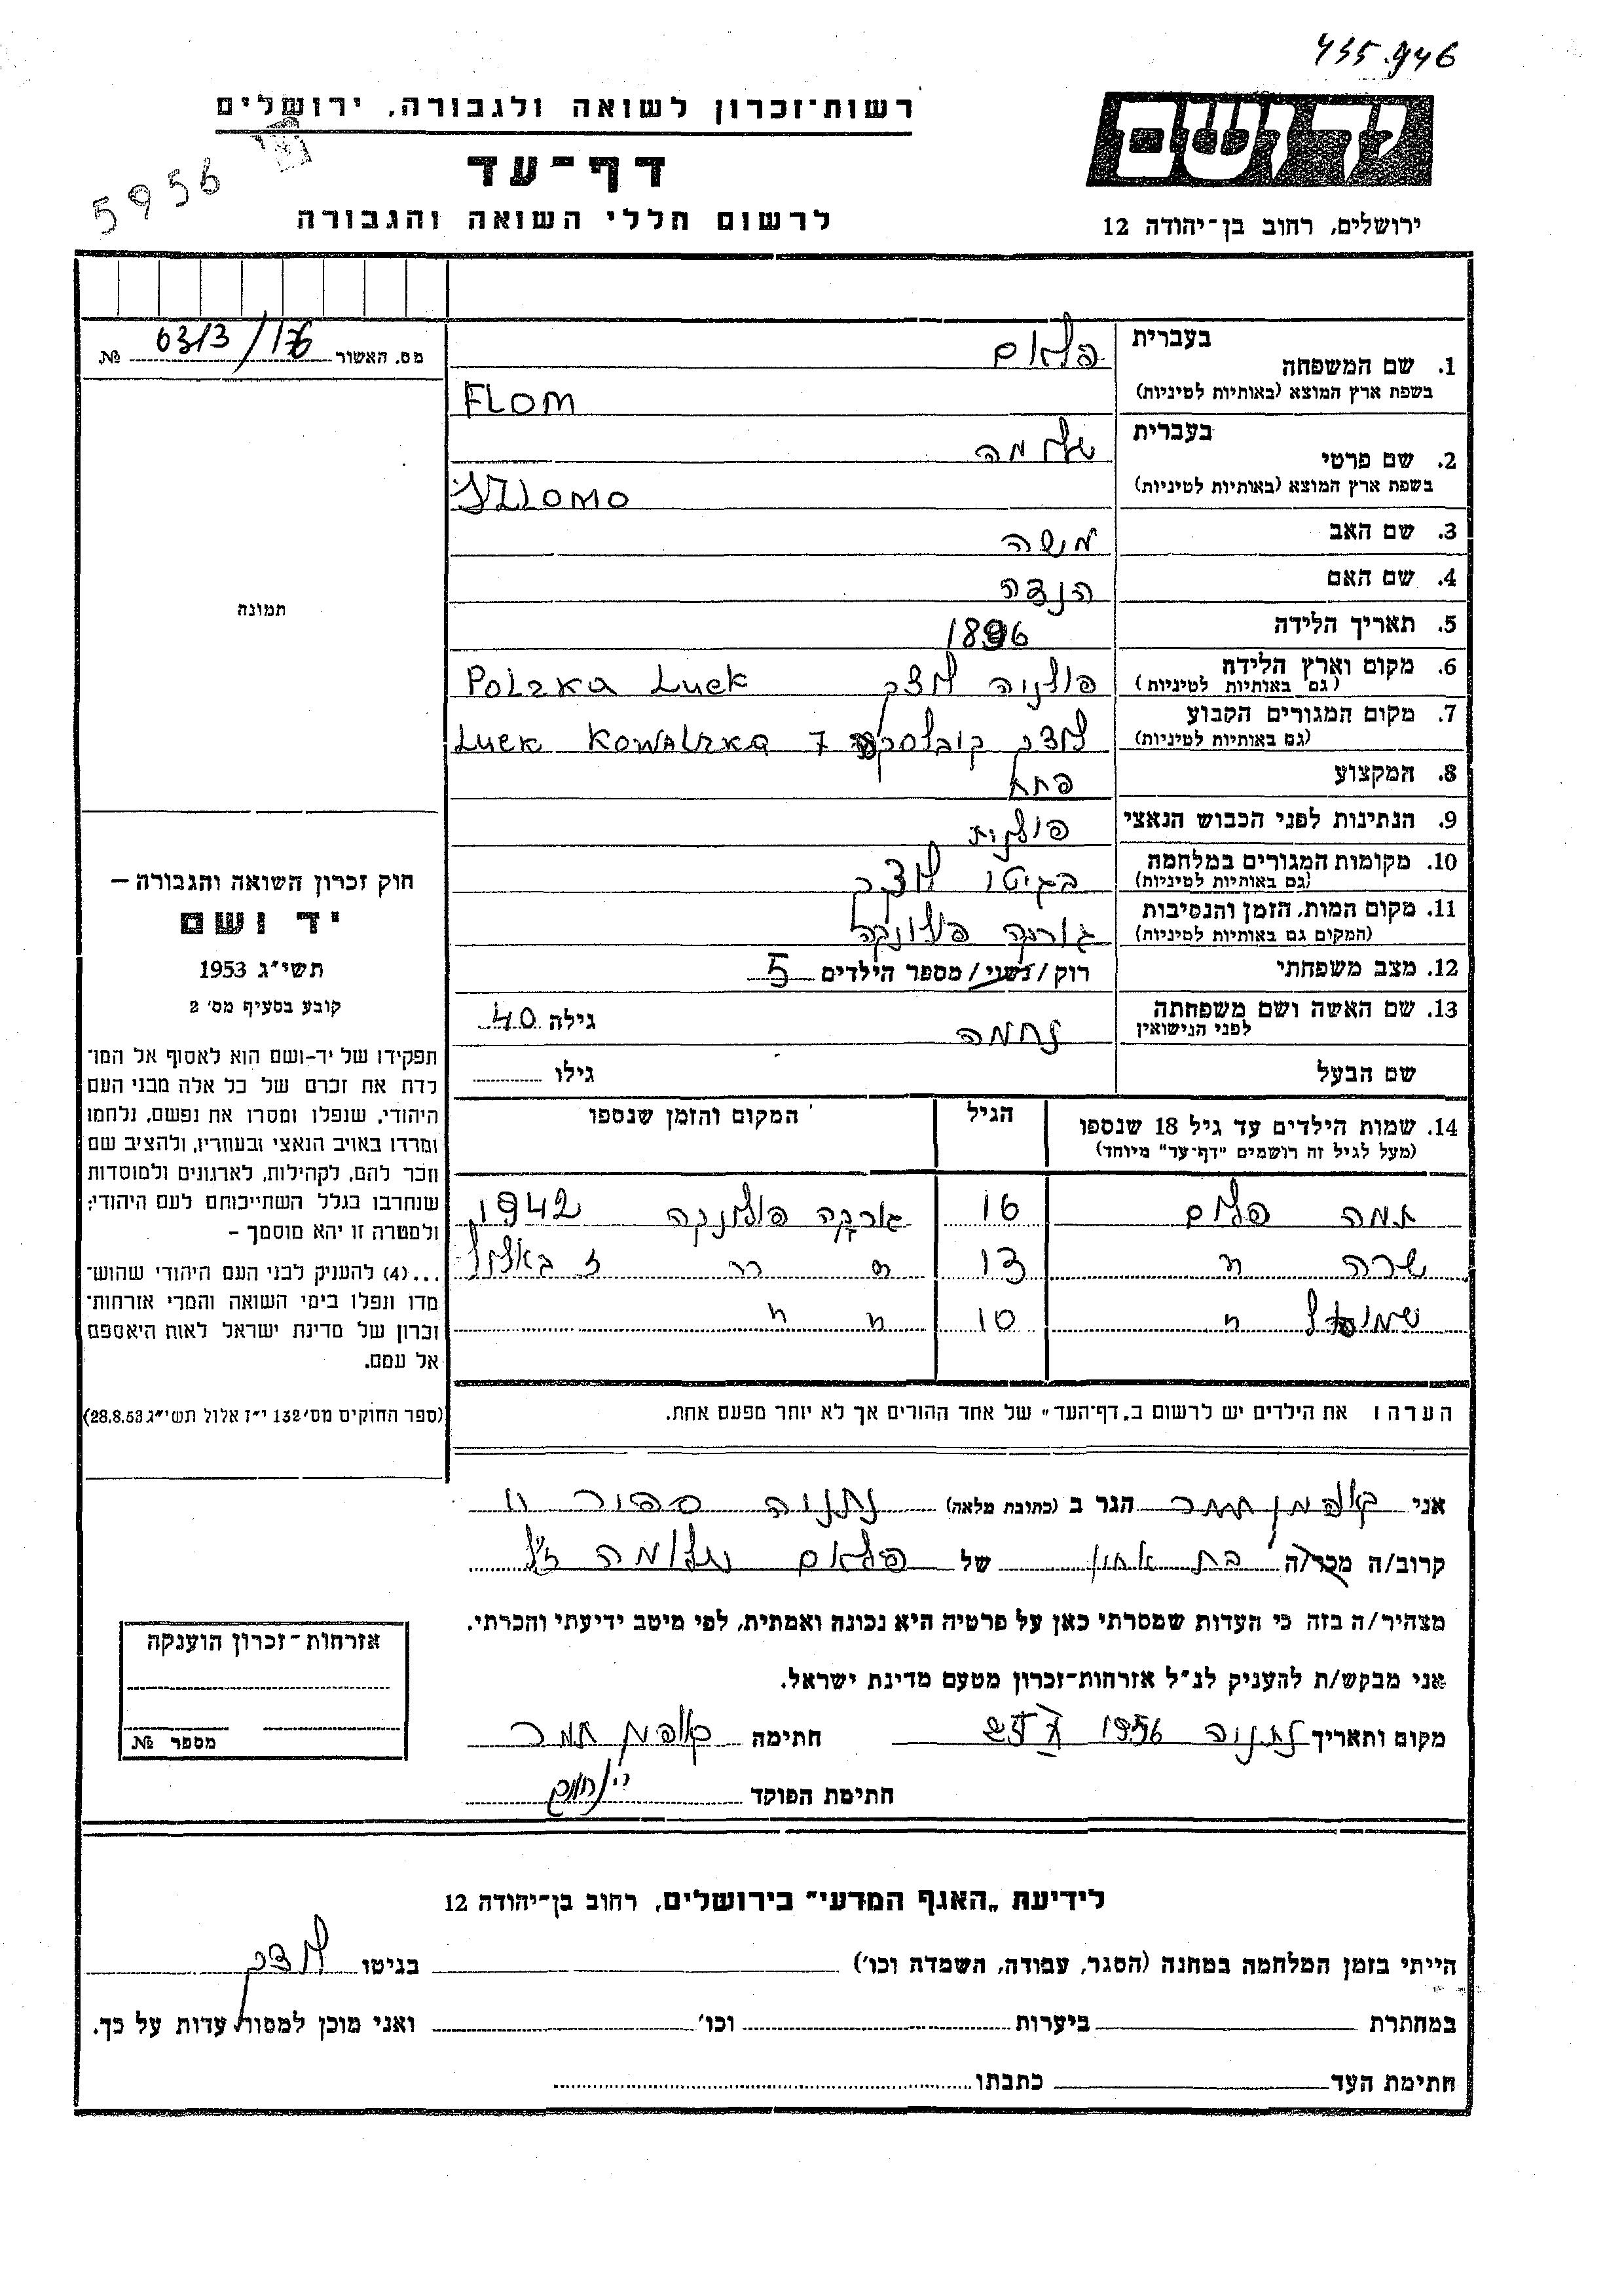 435.946
רשות־זכרון לשואה ולגבורה, ירושלים
דף־עד
לרשום חללי השואה והגבורה
5956
יד ושם
ירושלים, רחוב בן־יהודה 12
מס. האשור 0313/176 №
תמונה
חוק זכרון השואה והגבורה —
יד ושם
תשי״ג 1953
קובע בסעיף מס׳ 2
תפקידו של יד-ושם הוא לאסוף אל המו־
לדת את זכרם של כל אלה מבני העם
היהודי, שנפלו ומסרו את נפשם, נלחמו
ומרדו באויב הנאצי ובעוזריו, ולהציב שם
וזכר להם, לקהילות, לארגונים ולמוסדות
שנחרבו בגלל השתייכותם לעם היהודי;
ולמטרה זו יהא מוסמך –
...(4) להעניק לבני העם היהודי שהוש־
מדו ונפלו בימי השואה והמרי אזרחות־
זכרון של מדינת ישראל לאות היאספם
אל עמם.
(ספר החוקים מס׳ 132 י״ז אלול תשי״ג 28.8.53)
בעברית פלאם
1. שם המשפחה
בשפת ארץ המוצא (באותיות לטיניות) FLOM
בעברית שלמה
2. שם פרטי
בשפת ארץ המוצא (באותיות לטיניות) SZLOMO
3. שם האב משה
4. שם האם הנדה
5. תאריך הלידה 1896
6. מקום וארץ הלידה פולניה לצק Polzka Luck
(גם באותיות לטיניות)
7. מקום המגורים הקבוע לצק קובלסקה 7 Luck Kowalzka
(גם באותיות לטיניות)
8. המקצוע פחח
9. הנתינות לפני הכבוש הנאצי פולנית
10. מקומות המגורים במלחמה בגיטו לצק
(גם באותיות לטיניות)
11. מקום המות, הזמן והנסיבות גורקה פולונקה
(המקום גם באותיות לטיניות)
12. מצב משפחתי רוק/נשוי/מספר הילדים 5
13. שם האשה ושם משפחתה נחמה גילה 40
לפני הנישואין
שם הבעל גילו
14. שמות הילדים עד גיל 18 שנספו הגיל המקום והזמן שנספו
(מעל לגיל זה רושמים ״דף־עד״ מיוחד)
פלום 16 גורקה פולונקה 1942
שרה " 13 " " ז באלול
שמואל " 10 " "
הערה: את הילדים יש לרשום ב„דף־העד״ של אחד ההורים אך לא יותר מפעם אחת.
אני קולפמן תמר הגר ב (כתובת מלאה) נתניה ספיר 11
קרוב/ה מכר/ה בת אחות של פלאם שלומה ז״ל
מצהיר/ה בזה כי העדות שמסרתי כאן על פרטיה היא נכונה ואמתית, לפי מיטב ידיעתי והכרתי.
אני מבקש/ת להעניק לנ״ל אזרחות־זכרון מטעם מדינת ישראל.
מקום ותאריך נתניה 1956 חתימה תמר
חתימת הפוקד
אזרחות־זכרון הוענקה
מספר №
לידיעת „האגף המדעי״ בירושלים, רחוב בן־יהודה 12
הייתי בזמן המלחמה במחנה (הסגר, עבודה, השמדה וכו׳) בגיטו לצק
במחתרת ביערות וכו׳ ואני מוכן למסור עדות על כך.
חתימת העד כתבתו